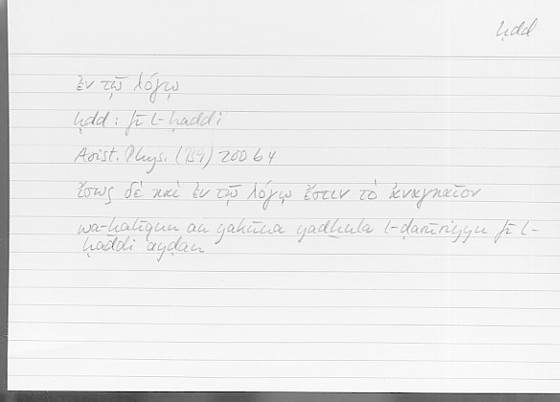 ḥdd
ἐν τῷ λόγῳ
ḥdd : fī l-ḥaddi
Arist. Phys. (II 9) 200 b 4
ἴσως δὲ καὶ ἐν τῷ λόγῳ ἔστιν τὸ ἀναγκαῖον
wa-ḫalīqun an yakūna yadḫula l-ḍarūrīyu fī l-
ḥaddi ayḍan